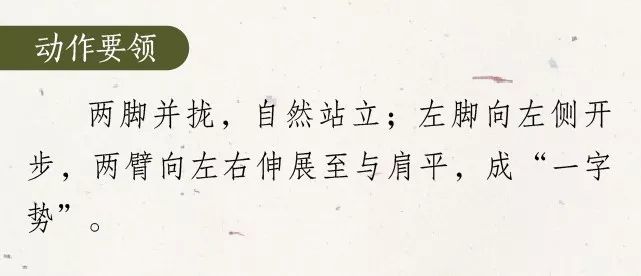 动作要领
两脚并拢，自然站立；左脚向左侧开
步，两臂向左右伸展至与肩平，成“一字
势”。